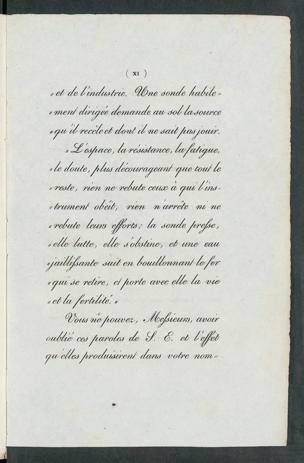 ( XI )
» et de l'industrie. Une sonde habile-
» ment dirigée demande au sol la source
» qu'il recèle et dont il ne sait pas jouir.
» L'espace, la résistance, la fatigue,
» le doute, plus décourageant que tout le
» reste, rien ne rebute ceux à qui l'ins-
» trument obéit, rien n'arrête ni ne
» rebute leurs efforts; la sonde presse,
» elle lutte, elle s'obstine, et une eau
» jaillissante suit en bouillonnant le fer
» qui se retire, et porte avec elle la vie
» et la fertilité. »
Vous ne pouvez, Messieurs, avoir
oublié ces paroles de S. E. et l'effet
qu'elles produisirent dans votre nom-